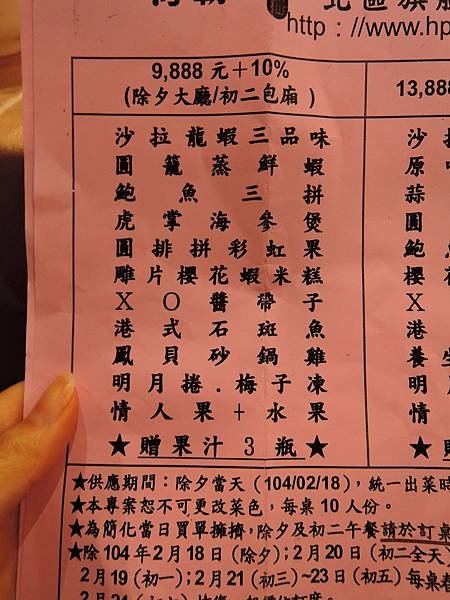 北區旗
http：//www.hp
9,888 元＋10%
(除夕大廳/初二包廂 )
沙拉龍蝦三品味
圓籠蒸鮮蝦
鮑魚三拼
虎掌海參煲
圓排拼彩虹果
雕片櫻花蝦米糕
XO醬帶子
港式石斑魚
鳳貝砂鍋雞
明月捲.梅子凍
情人果+水果
★贈果汁 3 瓶★
13,888
沙
原
蒜
圓
鮑
櫻
X
港
養
明
情
★
★供應期間：除夕當天（104/02/18），統一出菜時
★本專案恕不可更改菜色，每桌 10 人份。
★為簡化當日買單擁擠，除夕及初二午餐請於訂桌
★除 104 年 2 月 18 日（除夕）；2 月 20 日（初二全天）
2 月 19（初一）；2 月 21（初三）~23 日（初五）每桌